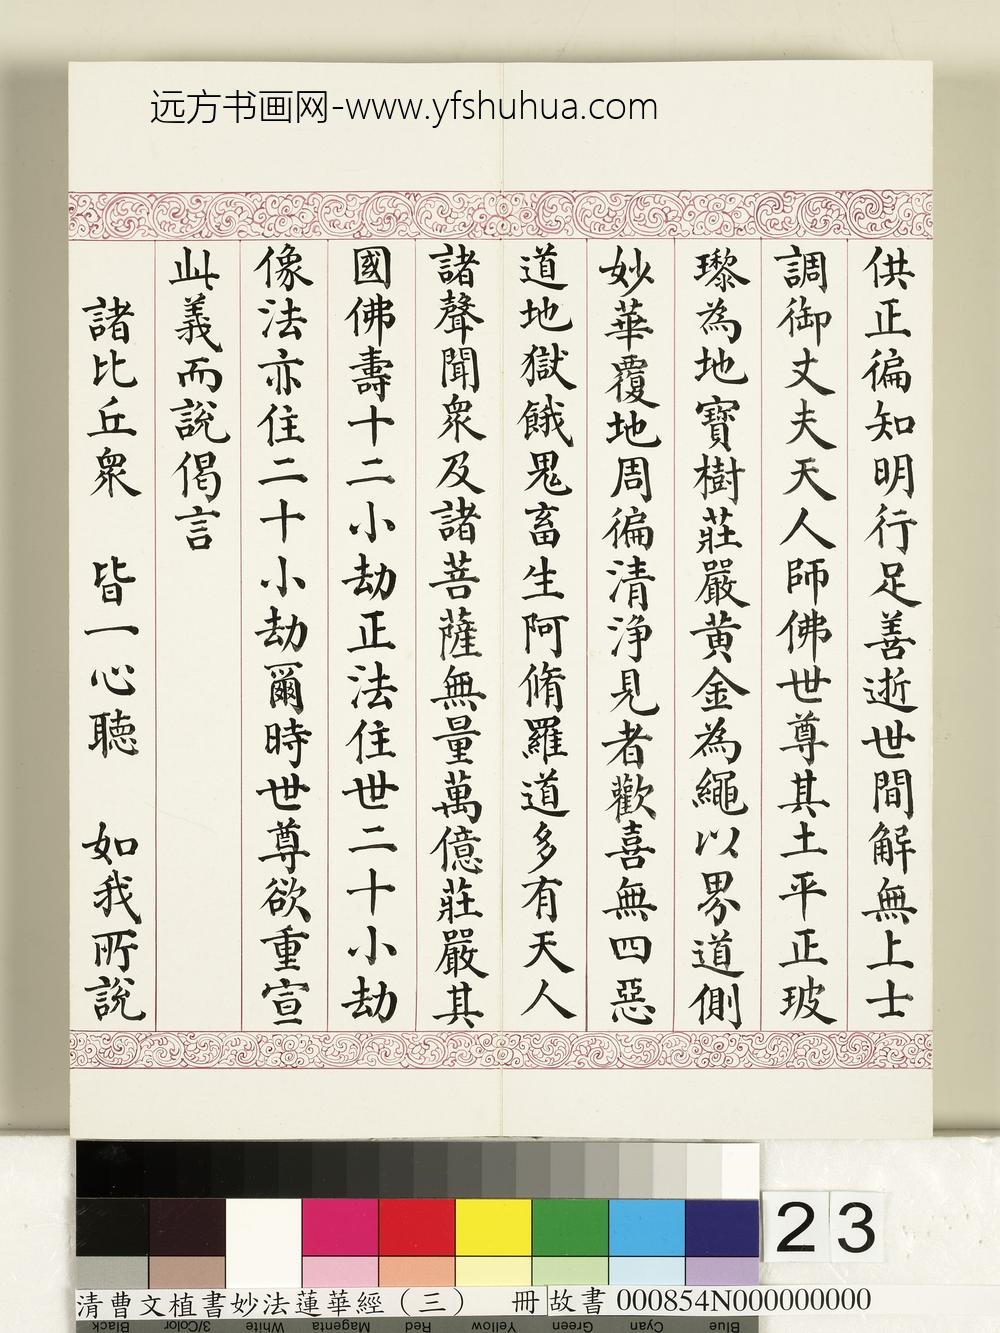 远方书画网-www.yfshuhua.com
供正徧知明行足善逝世間解無上士
調御丈夫天人師佛世尊其土平正玻
瓈為地寶樹莊嚴黃金為繩以界道側
妙華覆地周徧清淨見者歡喜無四惡
道地獄餓鬼畜生阿脩羅道多有天人
諸聲聞眾及諸菩薩無量萬億莊嚴其
國佛壽十二小劫正法住世二十小劫
像法亦住二十小劫爾時世尊欲重宣
此義而說偈言
諸比丘眾 皆一心聽 如我所說
23
清曹文植書妙法蓮華經（三） 冊 故書 000854N000000000
Black 3/Color White Magenta Red Yellow Green Cyan Blue